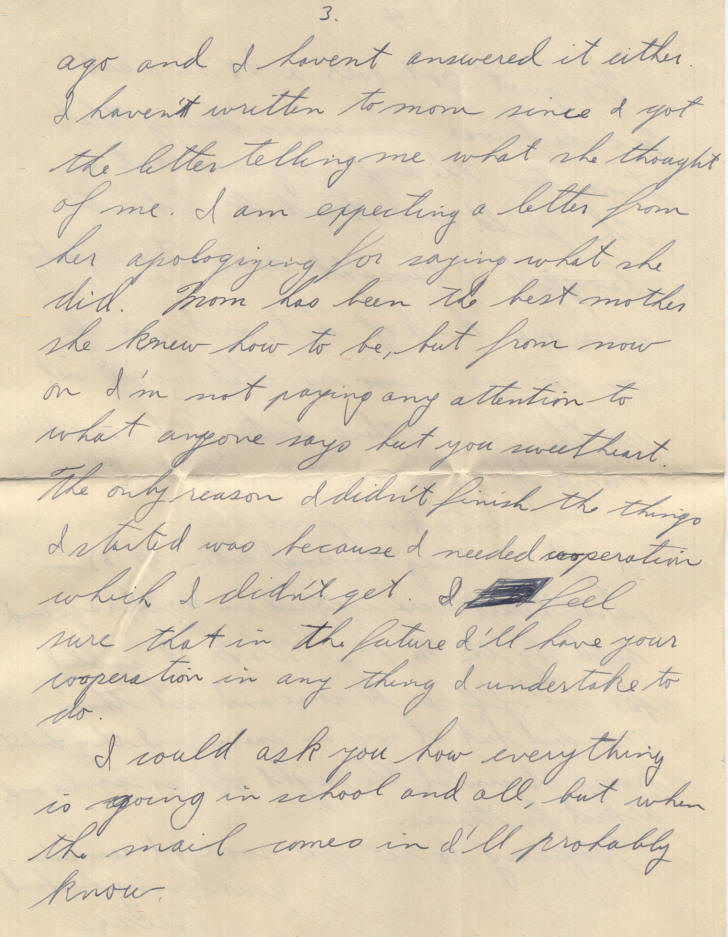 3.
ago and I havent answered it either.
I haven't written to mom since I got
the letter telling me what she thought
of me. I am expecting a letter from
her apologizing for saying what she
did. Mom has been the best mother
she knew how to be, but from now
on I'm not paying any attention to
what anyone says but you sweetheart.
The only reason I didn't finish the things
I started was because I needed cooperation
which I didn't get. I feel
sure that in the future I'll have your
cooperation in any thing I undertake to
do.
I could ask you how everything
is going in school and all, but when
the mail comes in I'll probably
know.